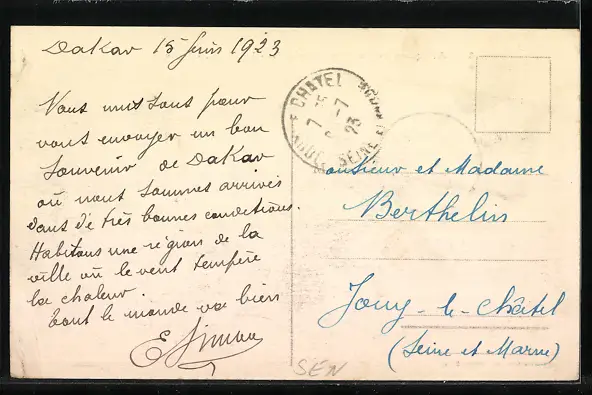 Dakar 15 Juin 1923
Nous unissons pour
vous envoyer un bon
souvenir de Dakar
où nous sommes arrivés
dans de très bonnes conditions.
Habitons une région de la
ville où le vent tempère
la chaleur.
Tout le monde va bien
E Simon
CHATEL
SEINE
7 -7
23
Monsieur et Madame
Berthelin
Jouy-le-Châtel
(Seine et Marne)
SEN